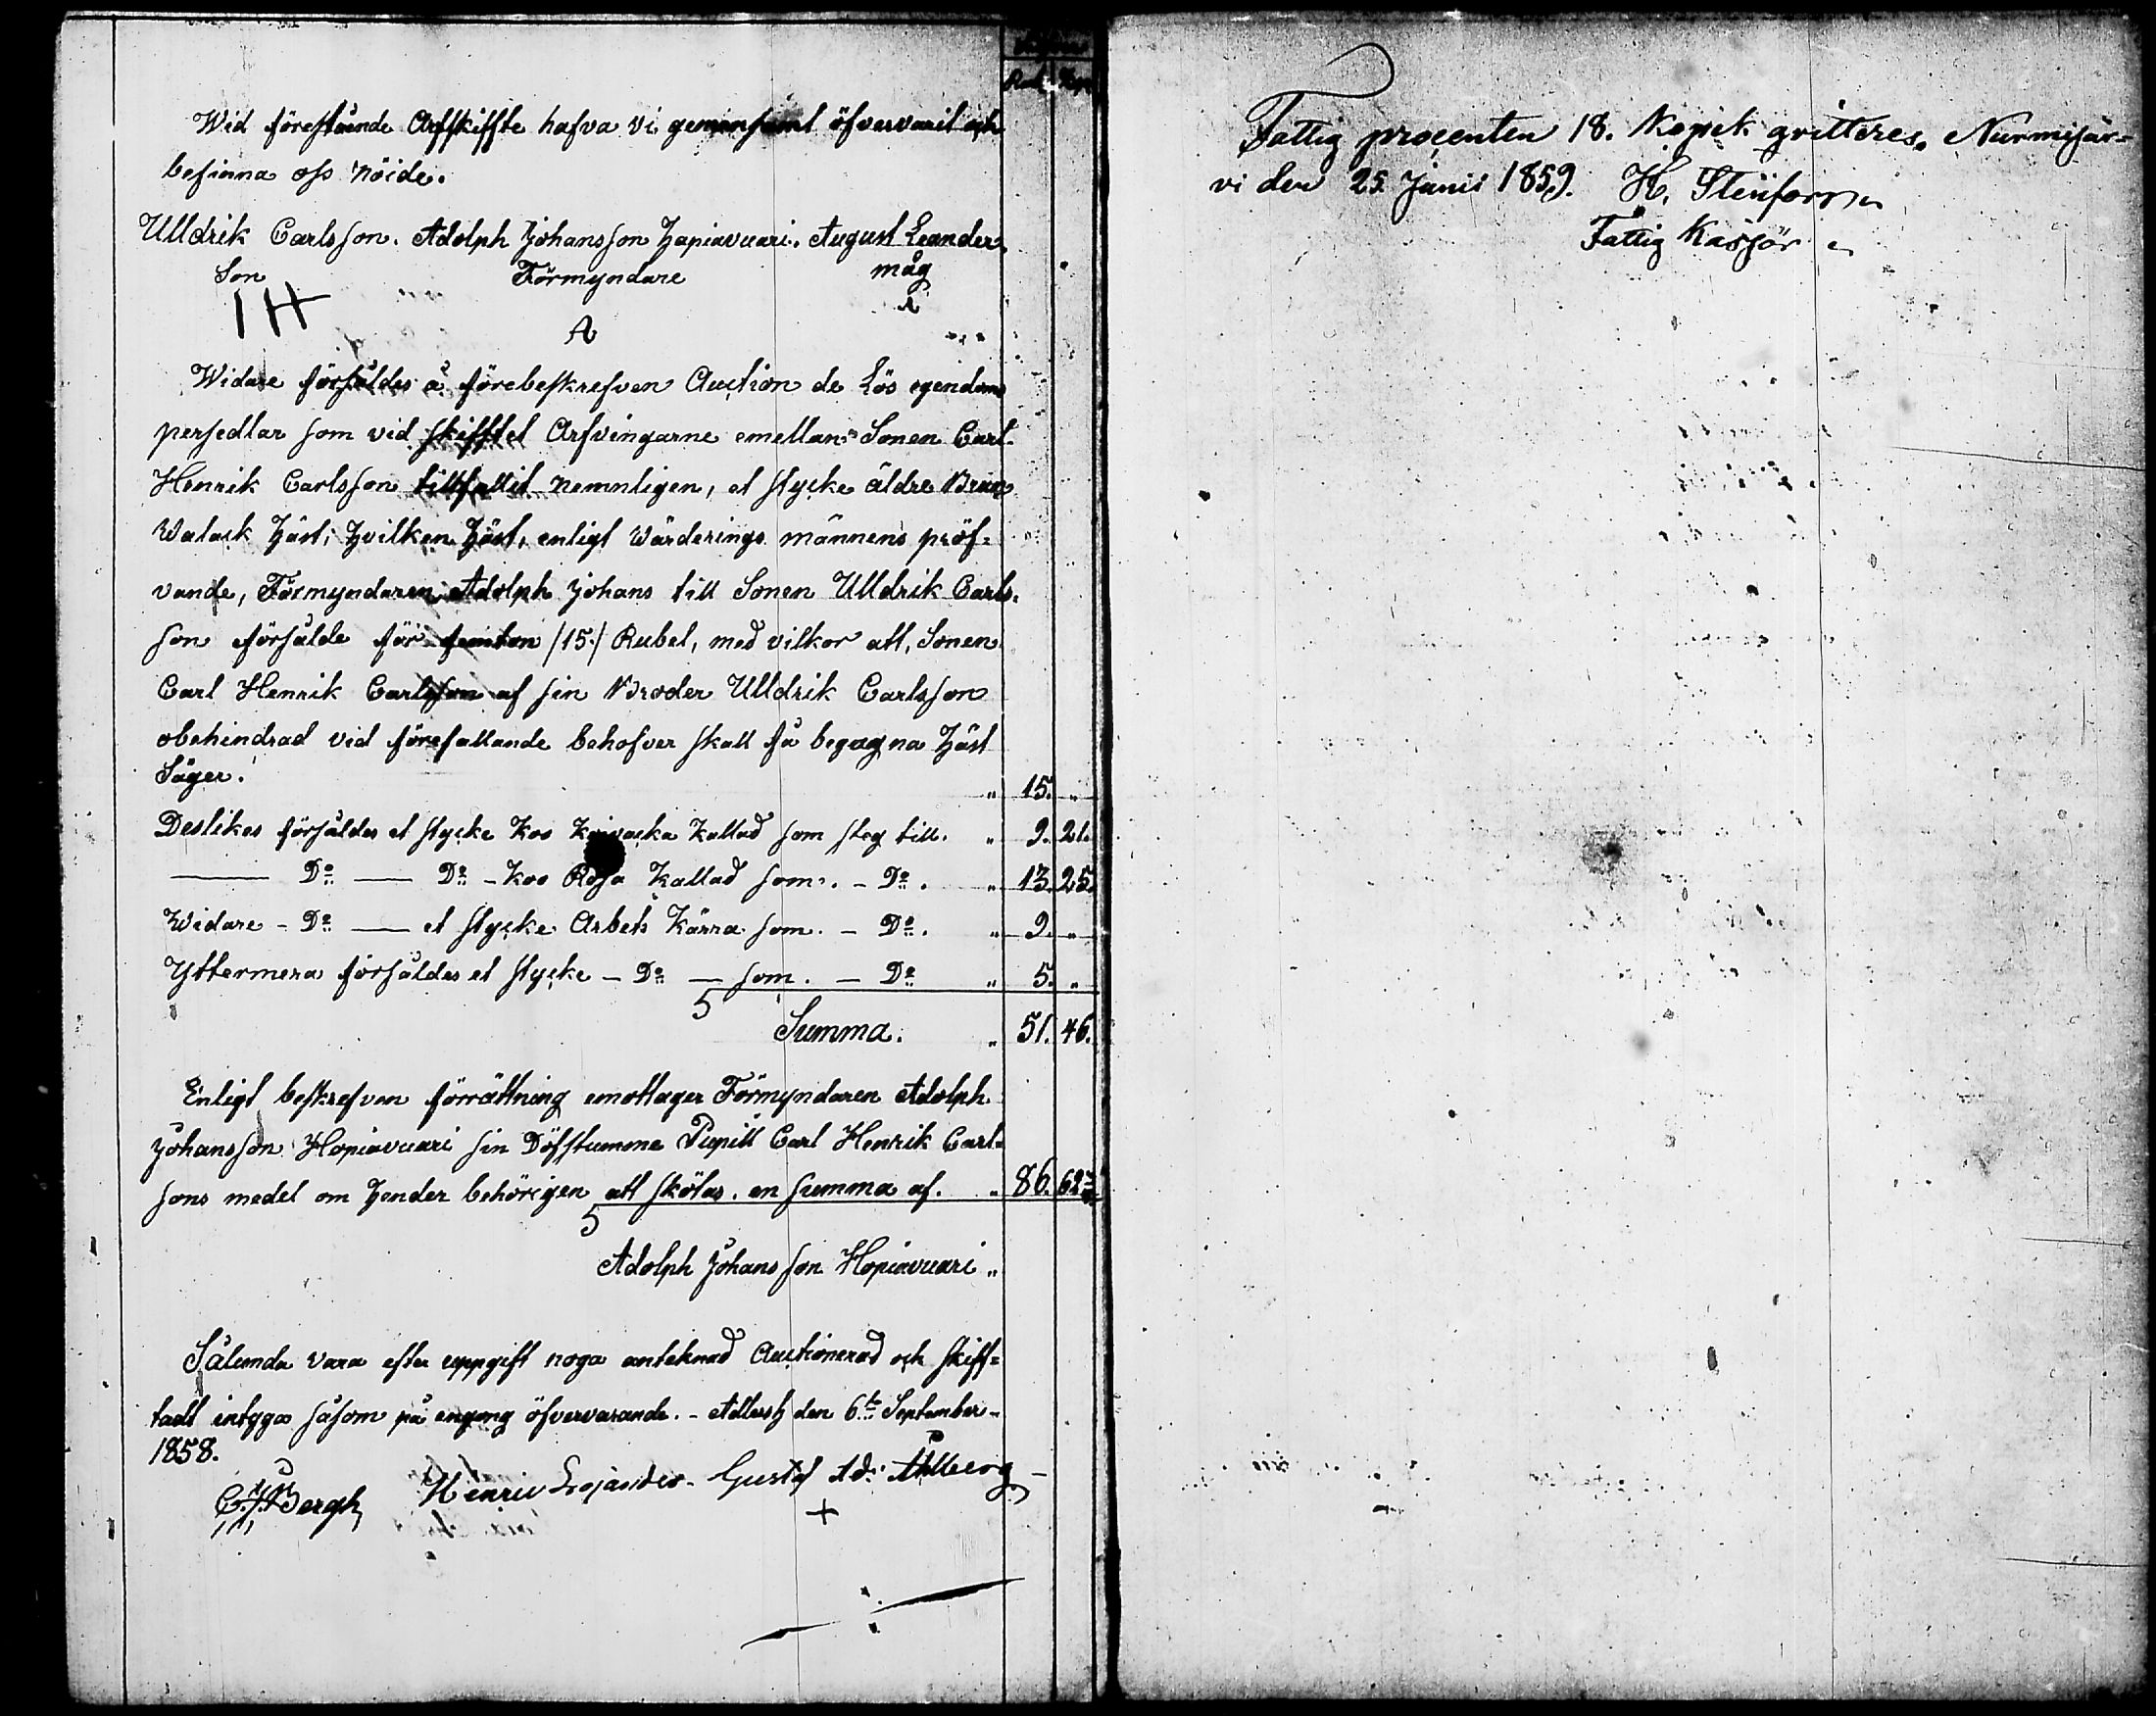 Rub. Kop.
Wid förestående Arfskiffte hafva vi gemensamt öfvervarit och
befinna oss nöide.
Ulldrik Carlsson. Adolph Johansson Hapiavuari. August Leander.
Son Förmyndare måg
Widare försåldes å förebeskrefven Auction de Lös egendoms
persedlar som vid skifftet Arfvingarne emellan Sonen Carl
Henrik Carlsson tillfallit nemnligen, et stycke äldre Brun
Walack Häst, Hvilken Häst, enligt Wärderings männens pröf-
vande, Förmyndaren Adolph Johans till Sonen Ulldrik Carls-
son försålde för femton /15./ Rubel, med vilkor att, Sonen
Carl Henrik Carlsson af sin Broder Ulldrik Carlsson
obehindrad vid förefallande behofver skall få begagna Häst
Säger. " 15. "
Deslikes försåldes et stycke Koo kallad som steg till. " 9. 21.
— Do — Do - Koo Rosa Kallad som. - Do. " 13. 25.
Widare - Do — et stycke Arbets Kärra som. - Do. " 9. "
Yttermera försåldes et stycke - Do — som. - Do " 5. "
Summa. " 51. 46.
Enligt beskrefven förrättning emottager Förmyndaren Adolph
Johansson Hopiavuari sin Döfstumme Pupill Carl Henrik Carl-
sons medel om Hender behörigen att skötas. en summa af. " 86. 62
Adolph Johansson Hopiavuari "
Sålunda vara efter uppgift noga anteknad Auctionerad och skiff-
tadt intygas såsom på engong öfvervarande. - den 6te September -
1858.
C. J. Bergh Henric Gustaf Ad: Ahlberg
+
Fattig procenten 18. Kopek qvitteres. Nurmijär-
vi den 25 Junii 1859. H. Stenfors
Fattig Kassör